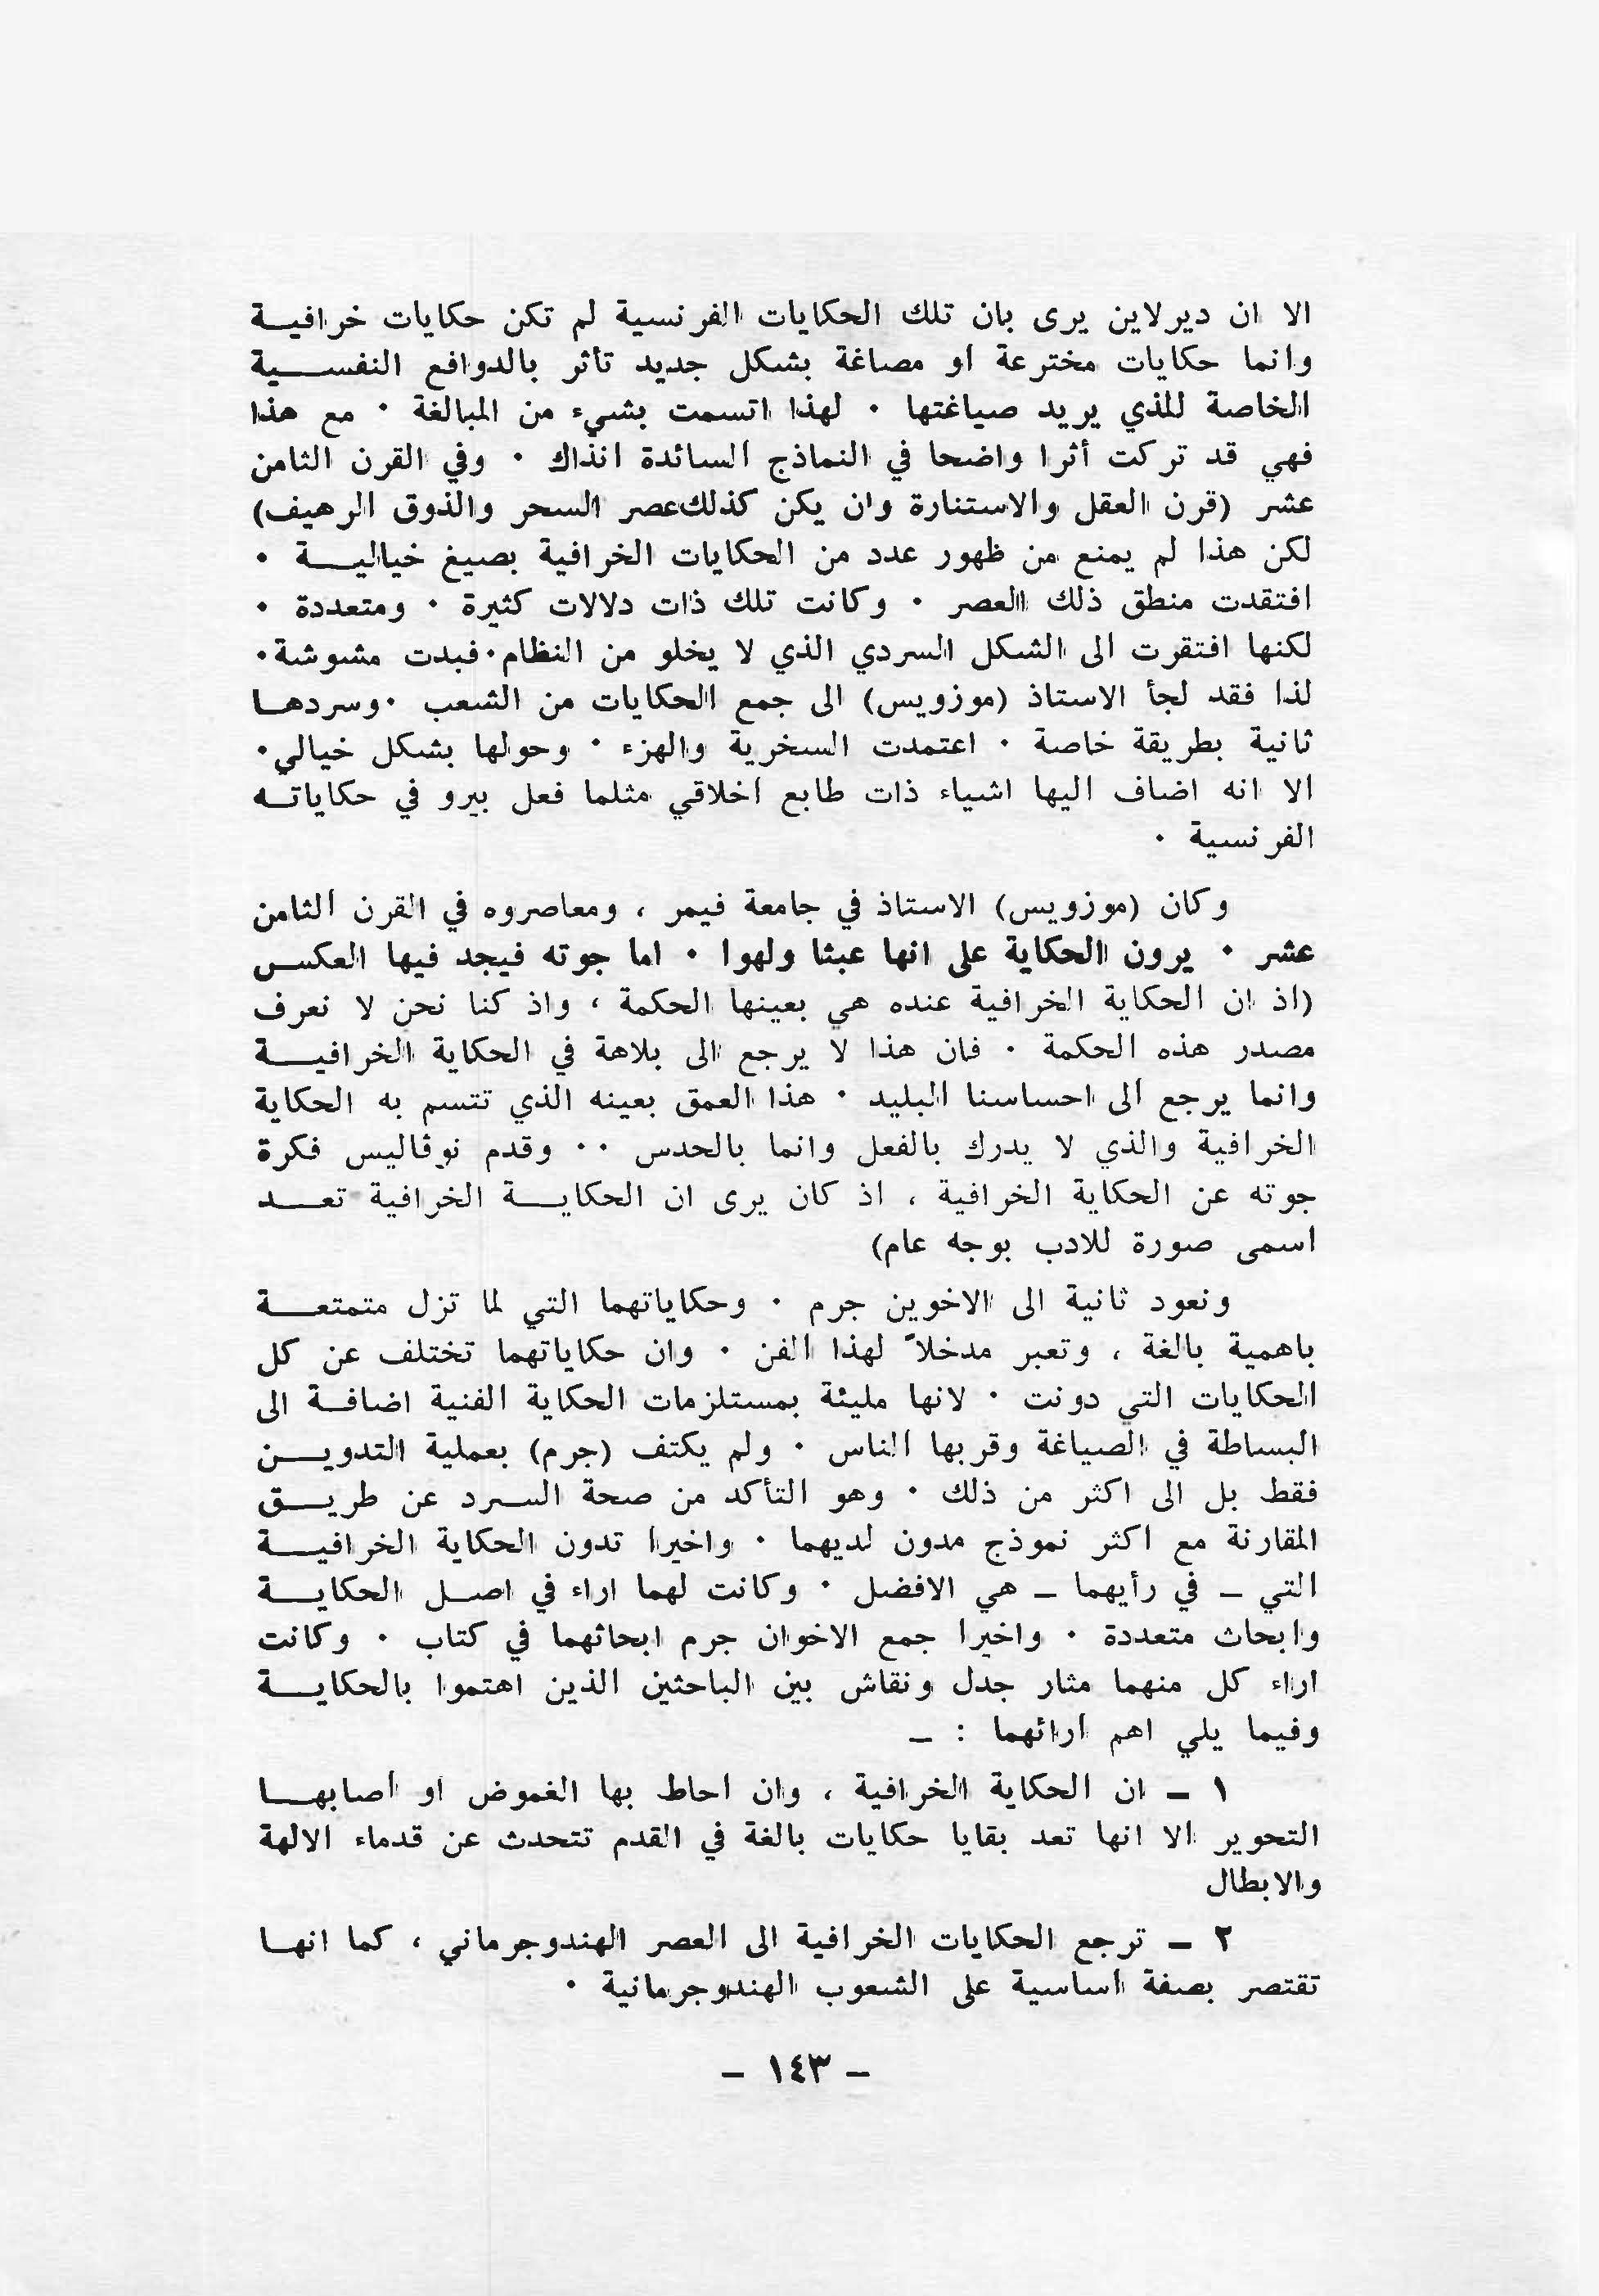 الا ان ديرلاين يرى بان تلك الحكايات الفرنسية لم تكن حكايات خرافيـة
وانما حكايات مخترعة او مصاغة بشكل جديد تأثر بالدوافع النفســية
الخاصة للذي يريد صياغتها ٠ لهذا اتسمت بشيء من المبالغة ٠ مع هذا
فهي قد تركت أثرا واضحا في النماذج السائدة انذاك ٠ وفي القرن الثامن
عشر (قرن العقل والاستنارة وان يكن كذلك عصر السحر والذوق الرهيف)
لكن هذا لم يمنع من ظهور عدد من الحكايات الخرافية بصيغ خياليــة ٠
افتقدت منطق ذلك العصر ٠ وكانت تلك ذات دلالات كثيرة ٠ ومتعددة ٠
لكنها افتقرت الى الشكل السردي الذي لا يخلو من النظام٠فبدت مشوشة٠
لذا فقد لجأ الاستاذ (موزويس) الى جمع الحكايات من الشعب ٠وسردهـا
ثانية بطريقة خاصة ٠ اعتمدت السخرية والهزء ٠ وحولها بشكل خيالي٠
الا انه اضاف اليها اشياء ذات طابع اخلاقي مثلما فعل بيرو في حكاياتـه
الفرنسية ٠
وكان (موزويس) الاستاذ في جامعة فيمر ، ومعاصروه في القرن الثامن
عشر ٠ يرون الحكاية على انها عبثا ولهوا ٠ اما جوته فيجد فيها العكس
(اذ ان الحكاية الخرافية عنده هي بعينها الحكمة ، واذ كنا نحن لا نعرف
مصدر هذه الحكمة ٠ فان هذا لا يرجع الى بلاهة في الحكاية الخرافيــة
وانما يرجع الى احساسنا البليد ٠ هذا العمق بعينه الذي تتسم به الحكاية
الخرافية والذي لا يدرك بالفعل وانما بالحدس ٠٠ وقدم نوڤاليس فكرة
جوته عن الحكاية الخرافية ، اذ كان يرى ان الحكايــة الخرافية تعــد
اسمى صورة للادب بوجه عام)
ونعود ثانية الى الاخوين جرم ٠ وحكاياتهما التي لما تزل متمتعــة
باهمية بالغة ، وتعبر مدخلاً لهذا الفن ٠ وان حكاياتهما تختلف عن كل
الحكايات التي دونت ٠ لانها مليئة بمستلزمات الحكاية الفنية اضافـة الى
البساطة في الصياغة وقربها الناس ٠ ولم يكتف (جرم) بعملية التدويــن
فقط بل الى اكثر من ذلك ٠ وهو التأكد من صحة السـرد عن طريــق
المقارنة مع اكثر نموذج مدون لديهما ٠ واخيرا تدون الحكاية الخرافيــة
التي ـ في رأيهما ـ هي الافضل ٠ وكانت لهما اراء في اصـل الحكايــة
وابحاث متعددة ٠ واخيرا جمع الاخوان جرم ابحاثهما في كتاب ٠ وكانت
اراء كل منهما مثار جدل ونقاش بين الباحثين الذين اهتموا بالحكايــة
وفيما يلي اهم ارائهما : ـ
١ ـ ان الحكاية الخرافية ، وان احاط بها الغموض او أصابهــا
التحوير الا انها تعد بقايا حكايات بالغة في القدم تتحدث عن قدماء الالهة
والابطال
٢ ـ ترجع الحكايات الخرافية الى العصر الهندوجرماني ، كما انهـا
تقتصر بصفة أساسية على الشعوب الهندوجرمانية ٠
ـ ١٤٣ ـ